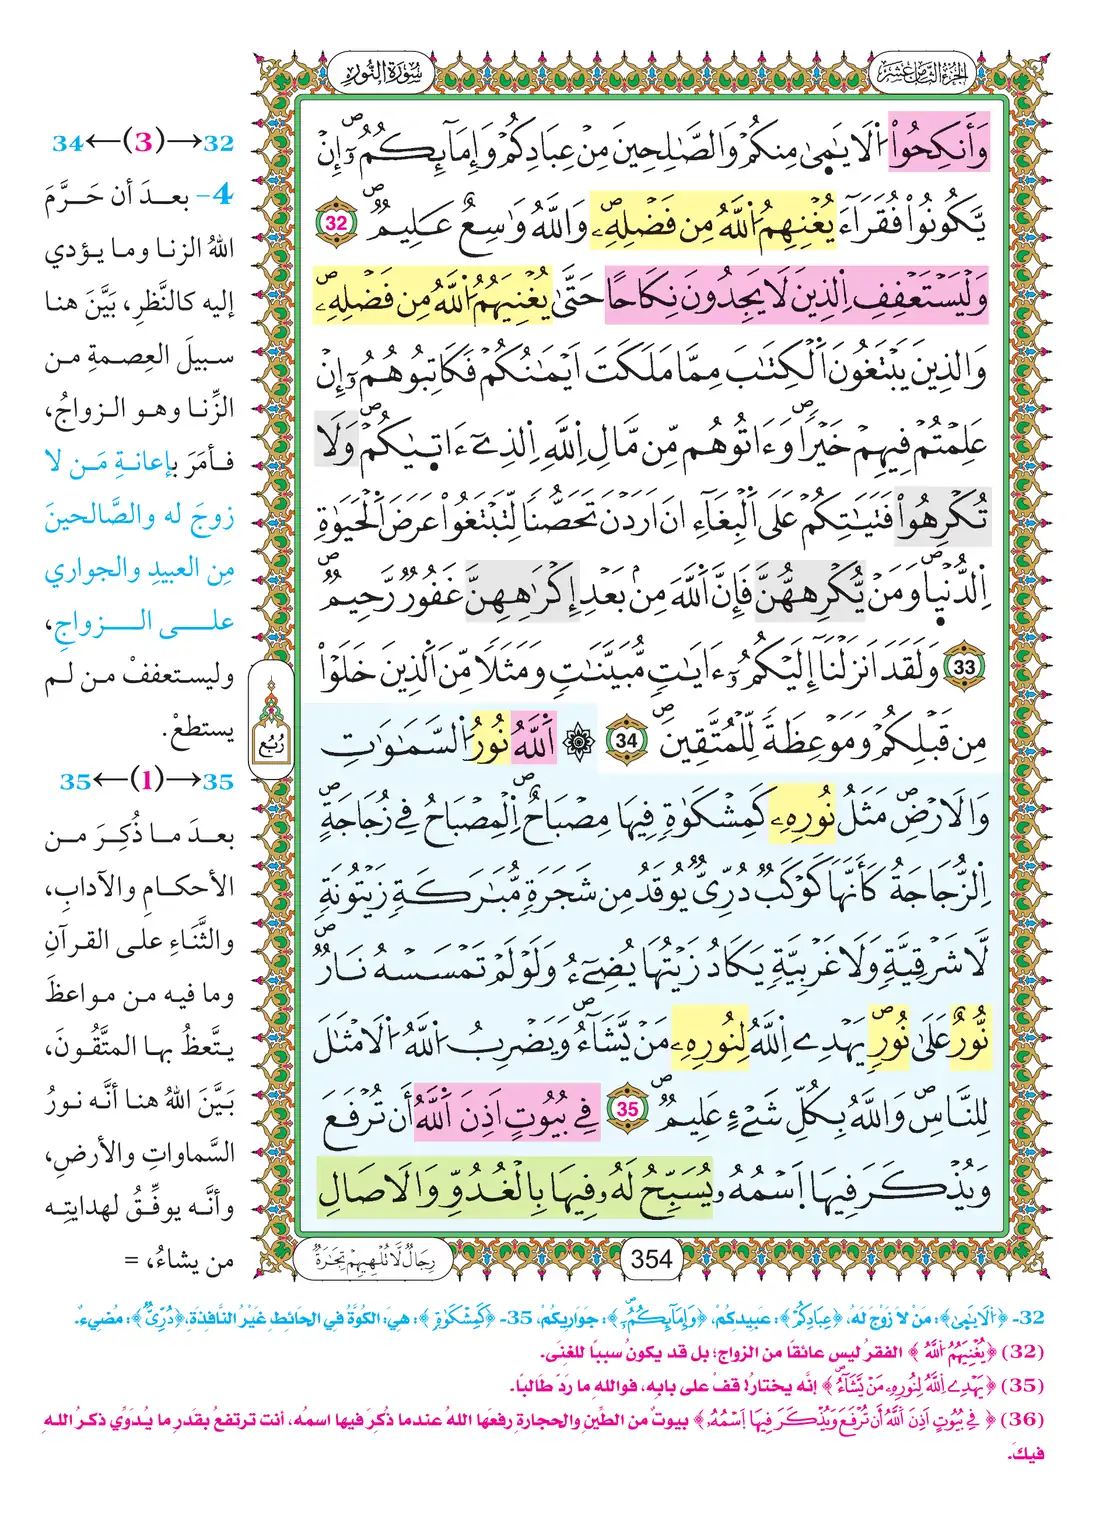 الجزء الثامن عشر
سورة النور
وَأَنكِحُواْ اُلَايَٰمَىٰ مِنكُمْ وَالصَّٰلِحِينَ مِنْ عِبَادِكُمْ وَإِمَآئِكُمُۥٓۖ إِنْ
يَّكُونُواْ فُقَرَآءَ يُغْنِهِمُ اُللَّهُ مِن فَضْلِهِۦۖ وَاللَّهُ وَٰسِعٌ عَلِيمٌۖ 32
وَلْيَسْتَعْفِفِ اِلذِينَ لَا يَجِدُونَ نِكَاحًا حَتَّىٰ يُغْنِيَهُمُ اُللَّهُ مِن فَضْلِهِۦۖ
وَالذِينَ يَبْتَغُونَ اَلْكِتَٰبَ مِمَّا مَلَكَتَ اَيْمَٰنُكُمْ فَكَاتِبُوهُمُۥٓ إِنْ
عَلِمْتُمْ فِيهِمْ خَيْراًۖ وَءَاتُوهُم مِّن مَّالِ اِللَّهِ اِلذِےٓ ءَاتٜيٰكُمْۖ وَلَا
تُكْرِهُواْ فَتَيَٰتِكُمْ عَلَى اَلْبِغَآءِ انَ اَرَدْنَ تَحَصُّناً لِّتَبْتَغُواْ عَرَضَ اَلْحَيَوٰةِ
اِلدُّنْيٜاۖ وَمَنْ يُّكْرِههُّنَّ فَإِنَّ اَللَّهَ مِنۢ بَعْدِ إِكْرَٰهِهِنَّ غَفُورٌ رَّحِيمٌۖ
33 وَلَقَدَ اَنزَلْنَآ إِلَيْكُمُۥٓ ءَايَٰتٍ مُّبَيَّنَٰتٍ وَمَثَلًا مِّنَ اَلذِينَ خَلَوْاْ
مِن قَبْلِكُمْ وَمَوْعِظَةً لِّلْمُتَّقِينَۖ 34 ۞ اَللَّهُ نُورُ اُلسَّمَٰوَٰتِ
وَالَارْضِۖ مَثَلُ نُورِهِۦ كَمِشْكَوٰةٍ فِيهَا مِصْبَاحٌۖ اِلْمِصْبَاحُ فِے زُجَاجَةٍۖ
اِلزُّجَاجَةُ كَأَنَّهَا كَوْكَبٌ دُرِّيٌّ يُوقَدُ مِن شَجَرَةٍ مُّبَٰرَكَةٍ زَيْتُونَةٍ
لَّا شَرْقِيَّةٍ وَلَا غَرْبِيَّةٍ يَكَادُ زَيْتُهَا يُضِےٓءُ وَلَوْ لَمْ تَمْسَسْهُ نَارٌۖ
نُّورٌ عَلَىٰ نُورٍۖ يَهْدِے اِللَّهُ لِنُورِهِۦ مَنْ يَّشَآءُۖ وَيَضْرِبُ اُللَّهُ اُلَامْثَٰلَ
لِلنَّاسِۖ وَاللَّهُ بِكُلِّ شَےْءٍ عَلِيمٌۖ 35 فِے بُيُوتٍ اَذِنَ اَللَّهُ أَن تُرْفَعَ
وَيُذْكَرَ فِيهَا اَسْمُهُۥ يُسَبِّحُ لَهُۥ فِيهَا بِالْغُدُوِّ وَالَاصَالِ
354
رِجَالٌ لَّا تُلْهِيهِمْ تِجَٰرَةٌ
رُبُع
32→(3)←34
4- بعدَ أن حَرَّمَ
اللهُ الزنا وما يؤدي
إليه كالنَّظرِ، بَيَّنَ هنا
سبيلَ العِصمةِ من
الزِّنا وهو الزواجُ،
فأمَرَ بإعانةِ مَن لا
زوجَ له والصَّالحينَ
مِن العبيدِ والجواري
على الزواجِ،
وليستعففْ من لم
يستطعْ.
35→(1)←35
بعدَ ما ذُكِرَ من
الأحكامِ والآدابِ،
والثَّنَاءِ على القرآنِ
وما فيه من مواعظَ
يتَّعظُ بها المتَّقُونَ،
بَيَّنَ اللهُ هنا أنَّه نورُ
السَّماواتِ والأرضِ،
وأنَّه يوفِّقُ لهدايتِه
من يشاءُ، =
32- ﴿اُلَايَٰمَىٰ﴾: مَنْ لاَ زَوْجَ لَهُ، ﴿عِبَادِكُمْ﴾: عَبِيدِكُمْ، ﴿وَإِمَآئِكُمُۥٓۖ﴾: جَوَارِيكُمْ، 35- ﴿كَمِشْكَوٰةٍ﴾: هِيَ: الكُوَّةُ فِي الحَائِطِ غَيْرُ النَّافِذَةِ، ﴿دُرِّيٌّ﴾: مُضِيءٌ.
(32) ﴿يُغْنِيَهُمُ اُللَّهُ﴾ الفقرُ ليس عائقًا من الزواج؛ بل قد يكونُ سببًا للغِنَى.
(35) ﴿يَهْدِے اِللَّهُ لِنُورِهِۦ مَنْ يَّشَآءُۖ﴾ إنَّه يختارُ! قفْ على بابِه، فواللهِ ما رَدَّ طَالبًا.
(36) ﴿فِے بُيُوتٍ اَذِنَ اَللَّهُ أَن تُرْفَعَ وَيُذْكَرَ فِيهَا اَسْمُهُۥ﴾ بيوتٌ من الطِّينِ والحجارةِ رفعَها اللهُ عندما ذُكِرَ فيها اسمُه، أنت ترتفعُ بقَدرِ ما يُدَوِّي ذكرُ اللهِ
فيكَ.